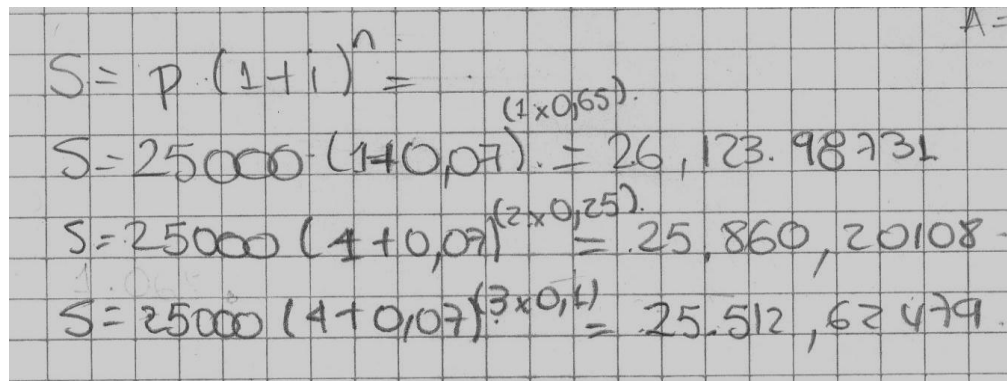 A=
S= p.(1+i)^n =
S=25000.(1+0,07)^(1x0,65). = 26,123.98731
S=25000 (1+0,07)^(2x0,25). = 25,860,20108
S=25000 (1+0,07)^(3x0,1) = 25.512,62479